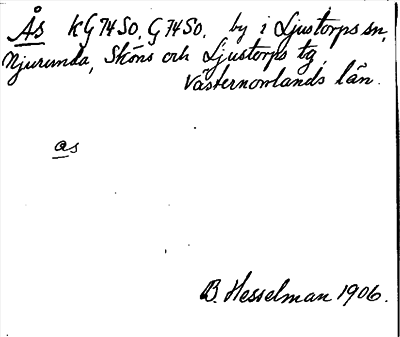 Ås KG74SO, G74SO, by i Ljustorps sn,
Njurunda, Sköns och Ljustorps tg,
Västernorrlands län.
as
B. Hesselman 1906.